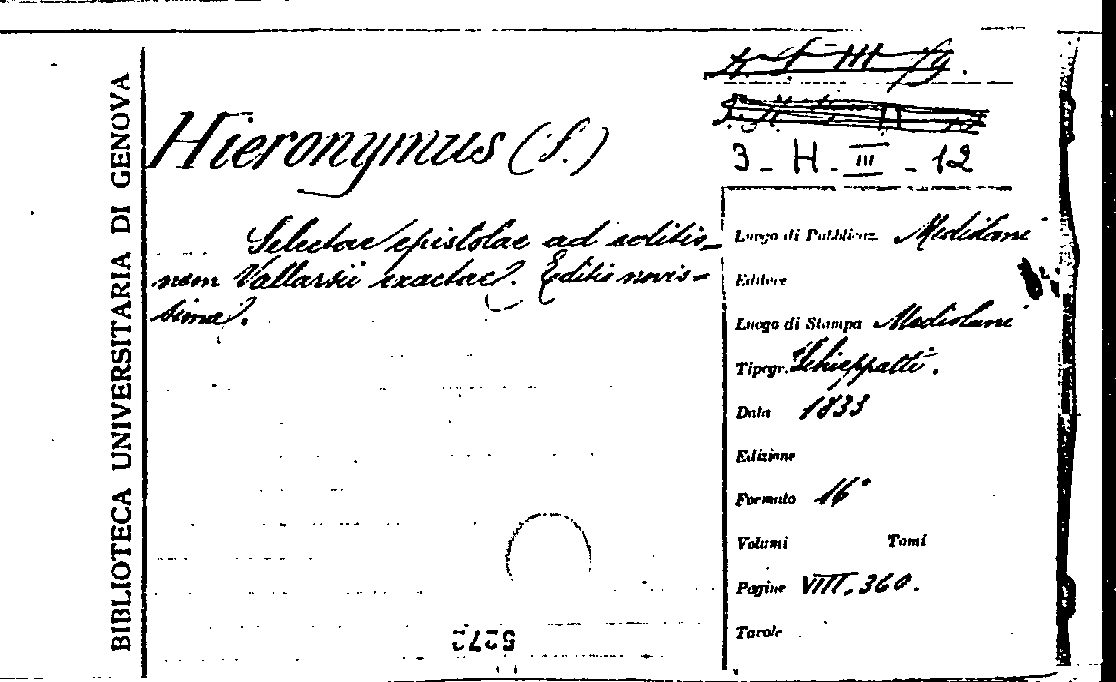 BIBLIOTECA UNIVERSITARIA DI GENOVA
3 - H - III - 12
Hieronymus (S.)
Selectae epistolae ad editio-
nem Vallarsii exactae. Editio novis-
sima.
Luogo di Pubblicaz. Mediolani
Editore
Luogo di Stampa Mediolani
Tipogr. Schieppatti.
Data 1833
Edizione
Formato 16°
Volumi Tomi
Pagine VIII, 360.
Tavole
5272